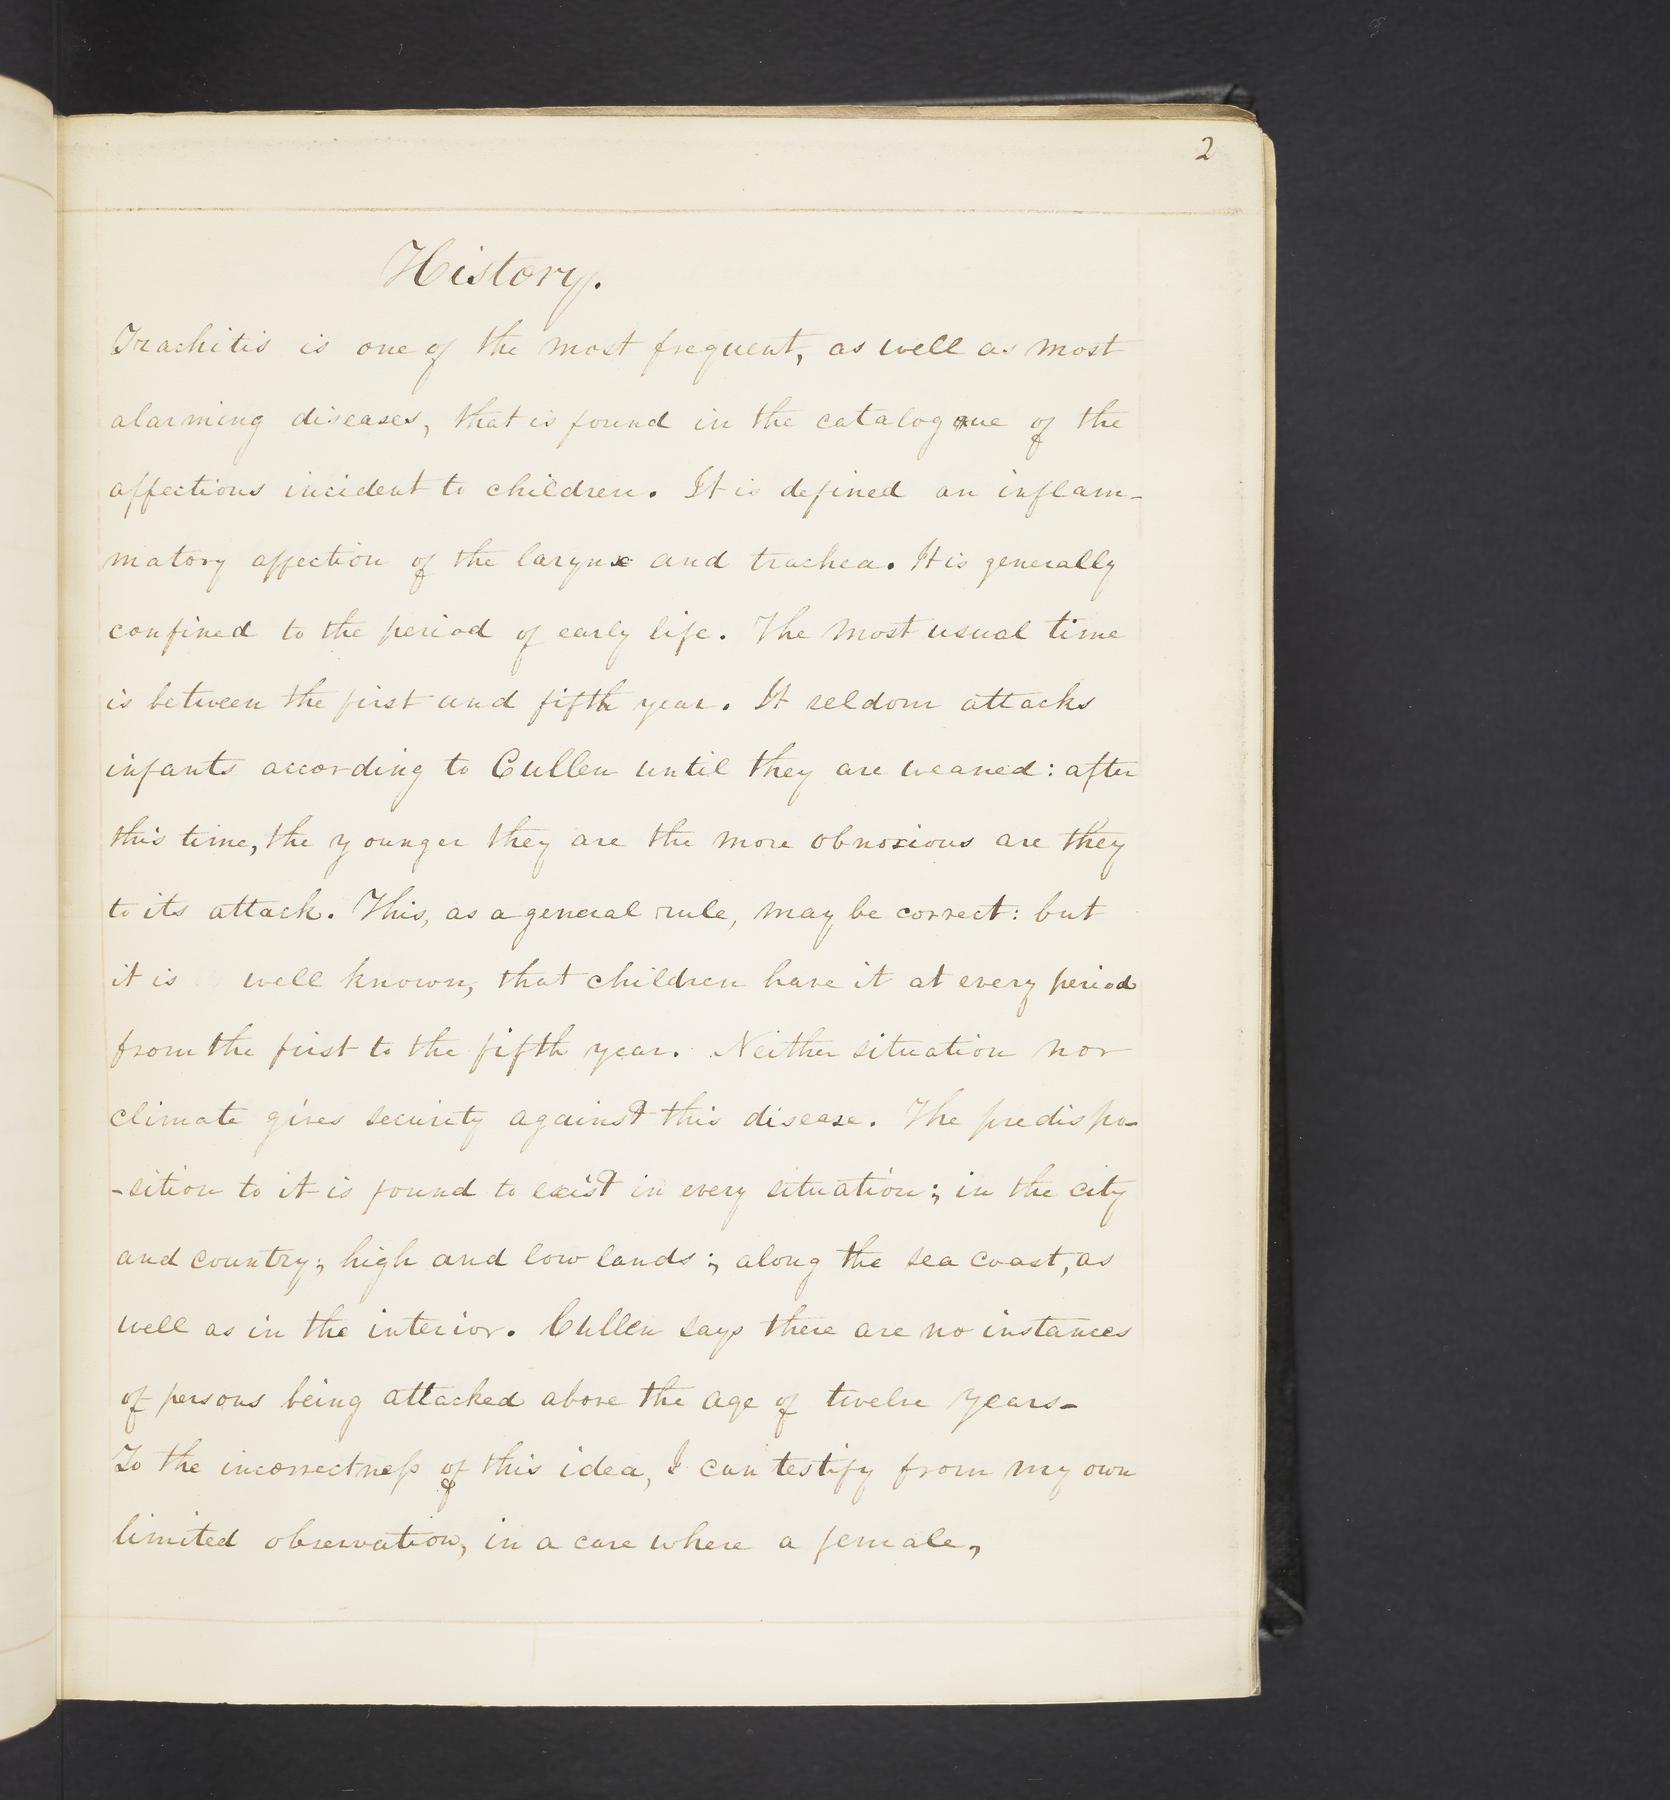 2
History.
Trachitis is one of the most frequent, as well as most
alarming diseases, that is found in the catalogue of the
affections incident to children. It is defined an inflam-
matory affection of the larynx and trachea. It is generally
confined to the period of early life. The most usual time
is between the first and fifth year. It seldom attacks
infants according to Cullen until they are weaned: after
this time, the younger they are the more obnoxious are they
to its attack. This, as a general rule, may be correct: but
it is well known, that children have it at every period
from the first to the fifth year. Neither situation nor
climate gives security against this disease. The predispo-
-sition to it is found to exist in every situation; in the city
and country; high and low lands; along the sea coast, as
well as in the interior. Cullen says there are no instances
of persons being attacked above the age of twelve years-
To the incorrectness of this idea, I can testify from my own
limited observation, in a case where a female,